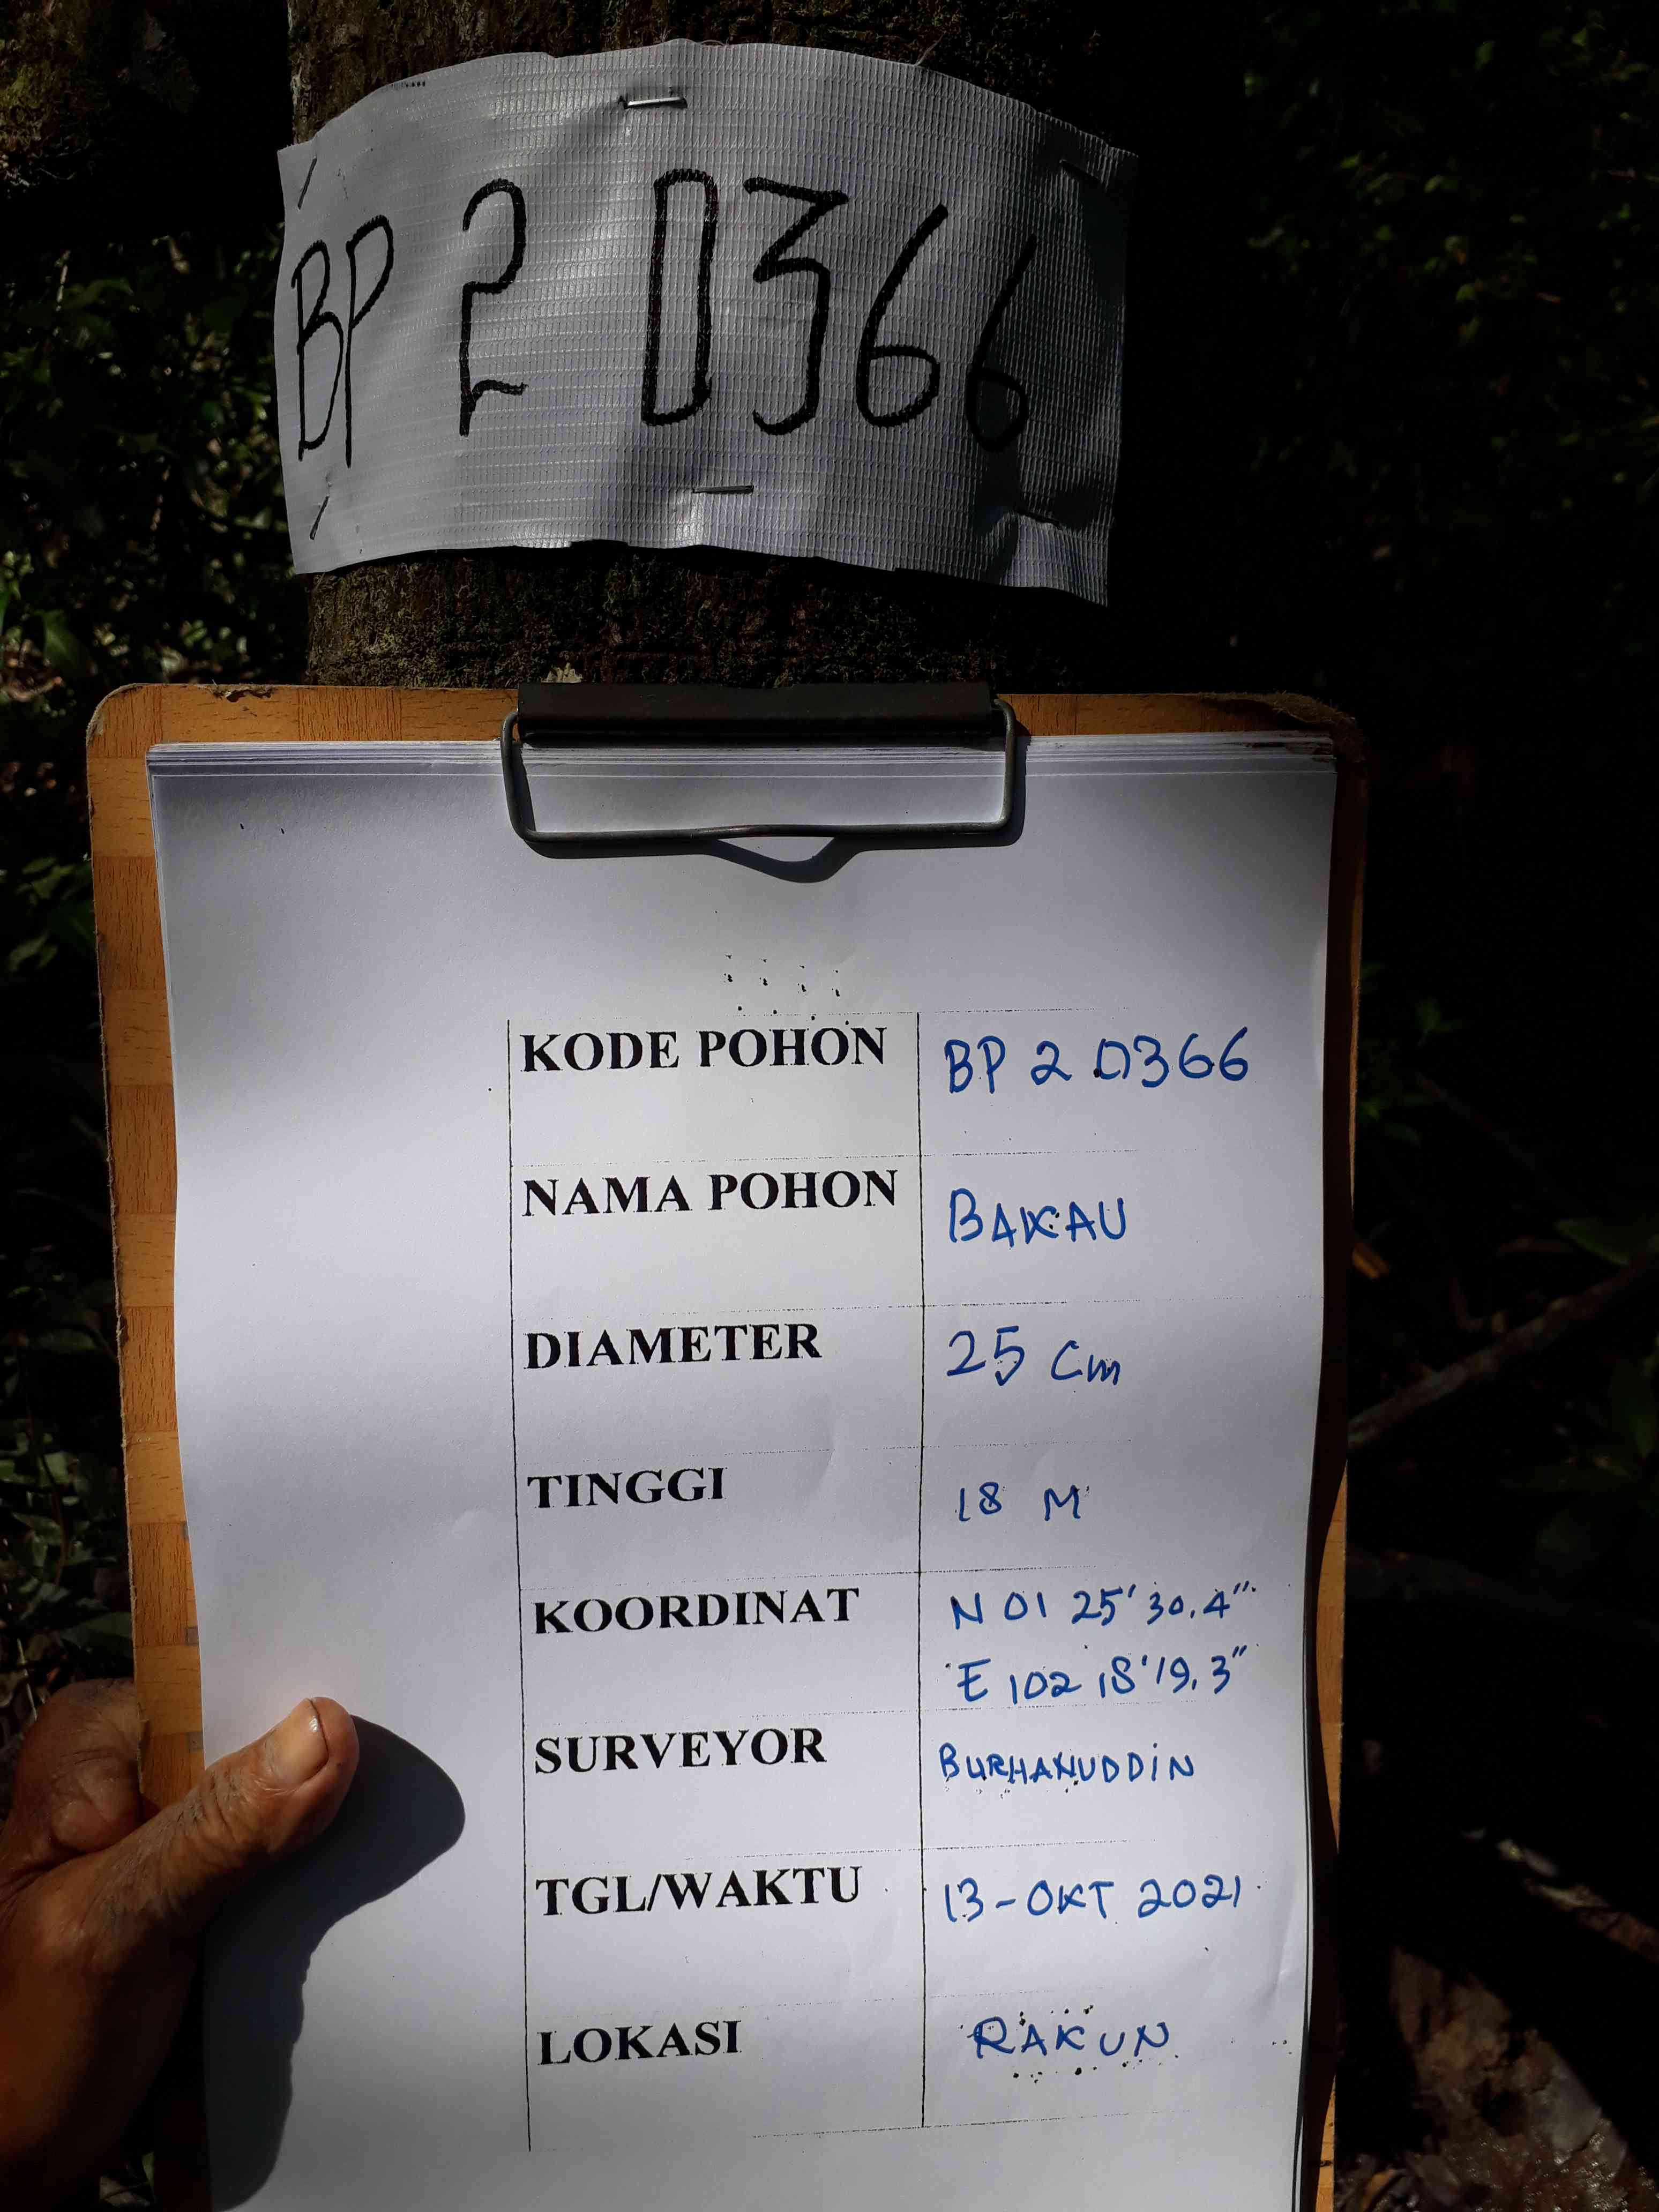 BP 2 0366
KODE POHON BP 2 0366
NAMA POHON BAKAU
DIAMETER 25 Cm
TINGGI 18 M
KOORDINAT N 01 25' 30.4"
E 102 18' 19.3"
SURVEYOR BURHANUDDIN
TGL/WAKTU 13-OKT 2021
LOKASI RAKUN